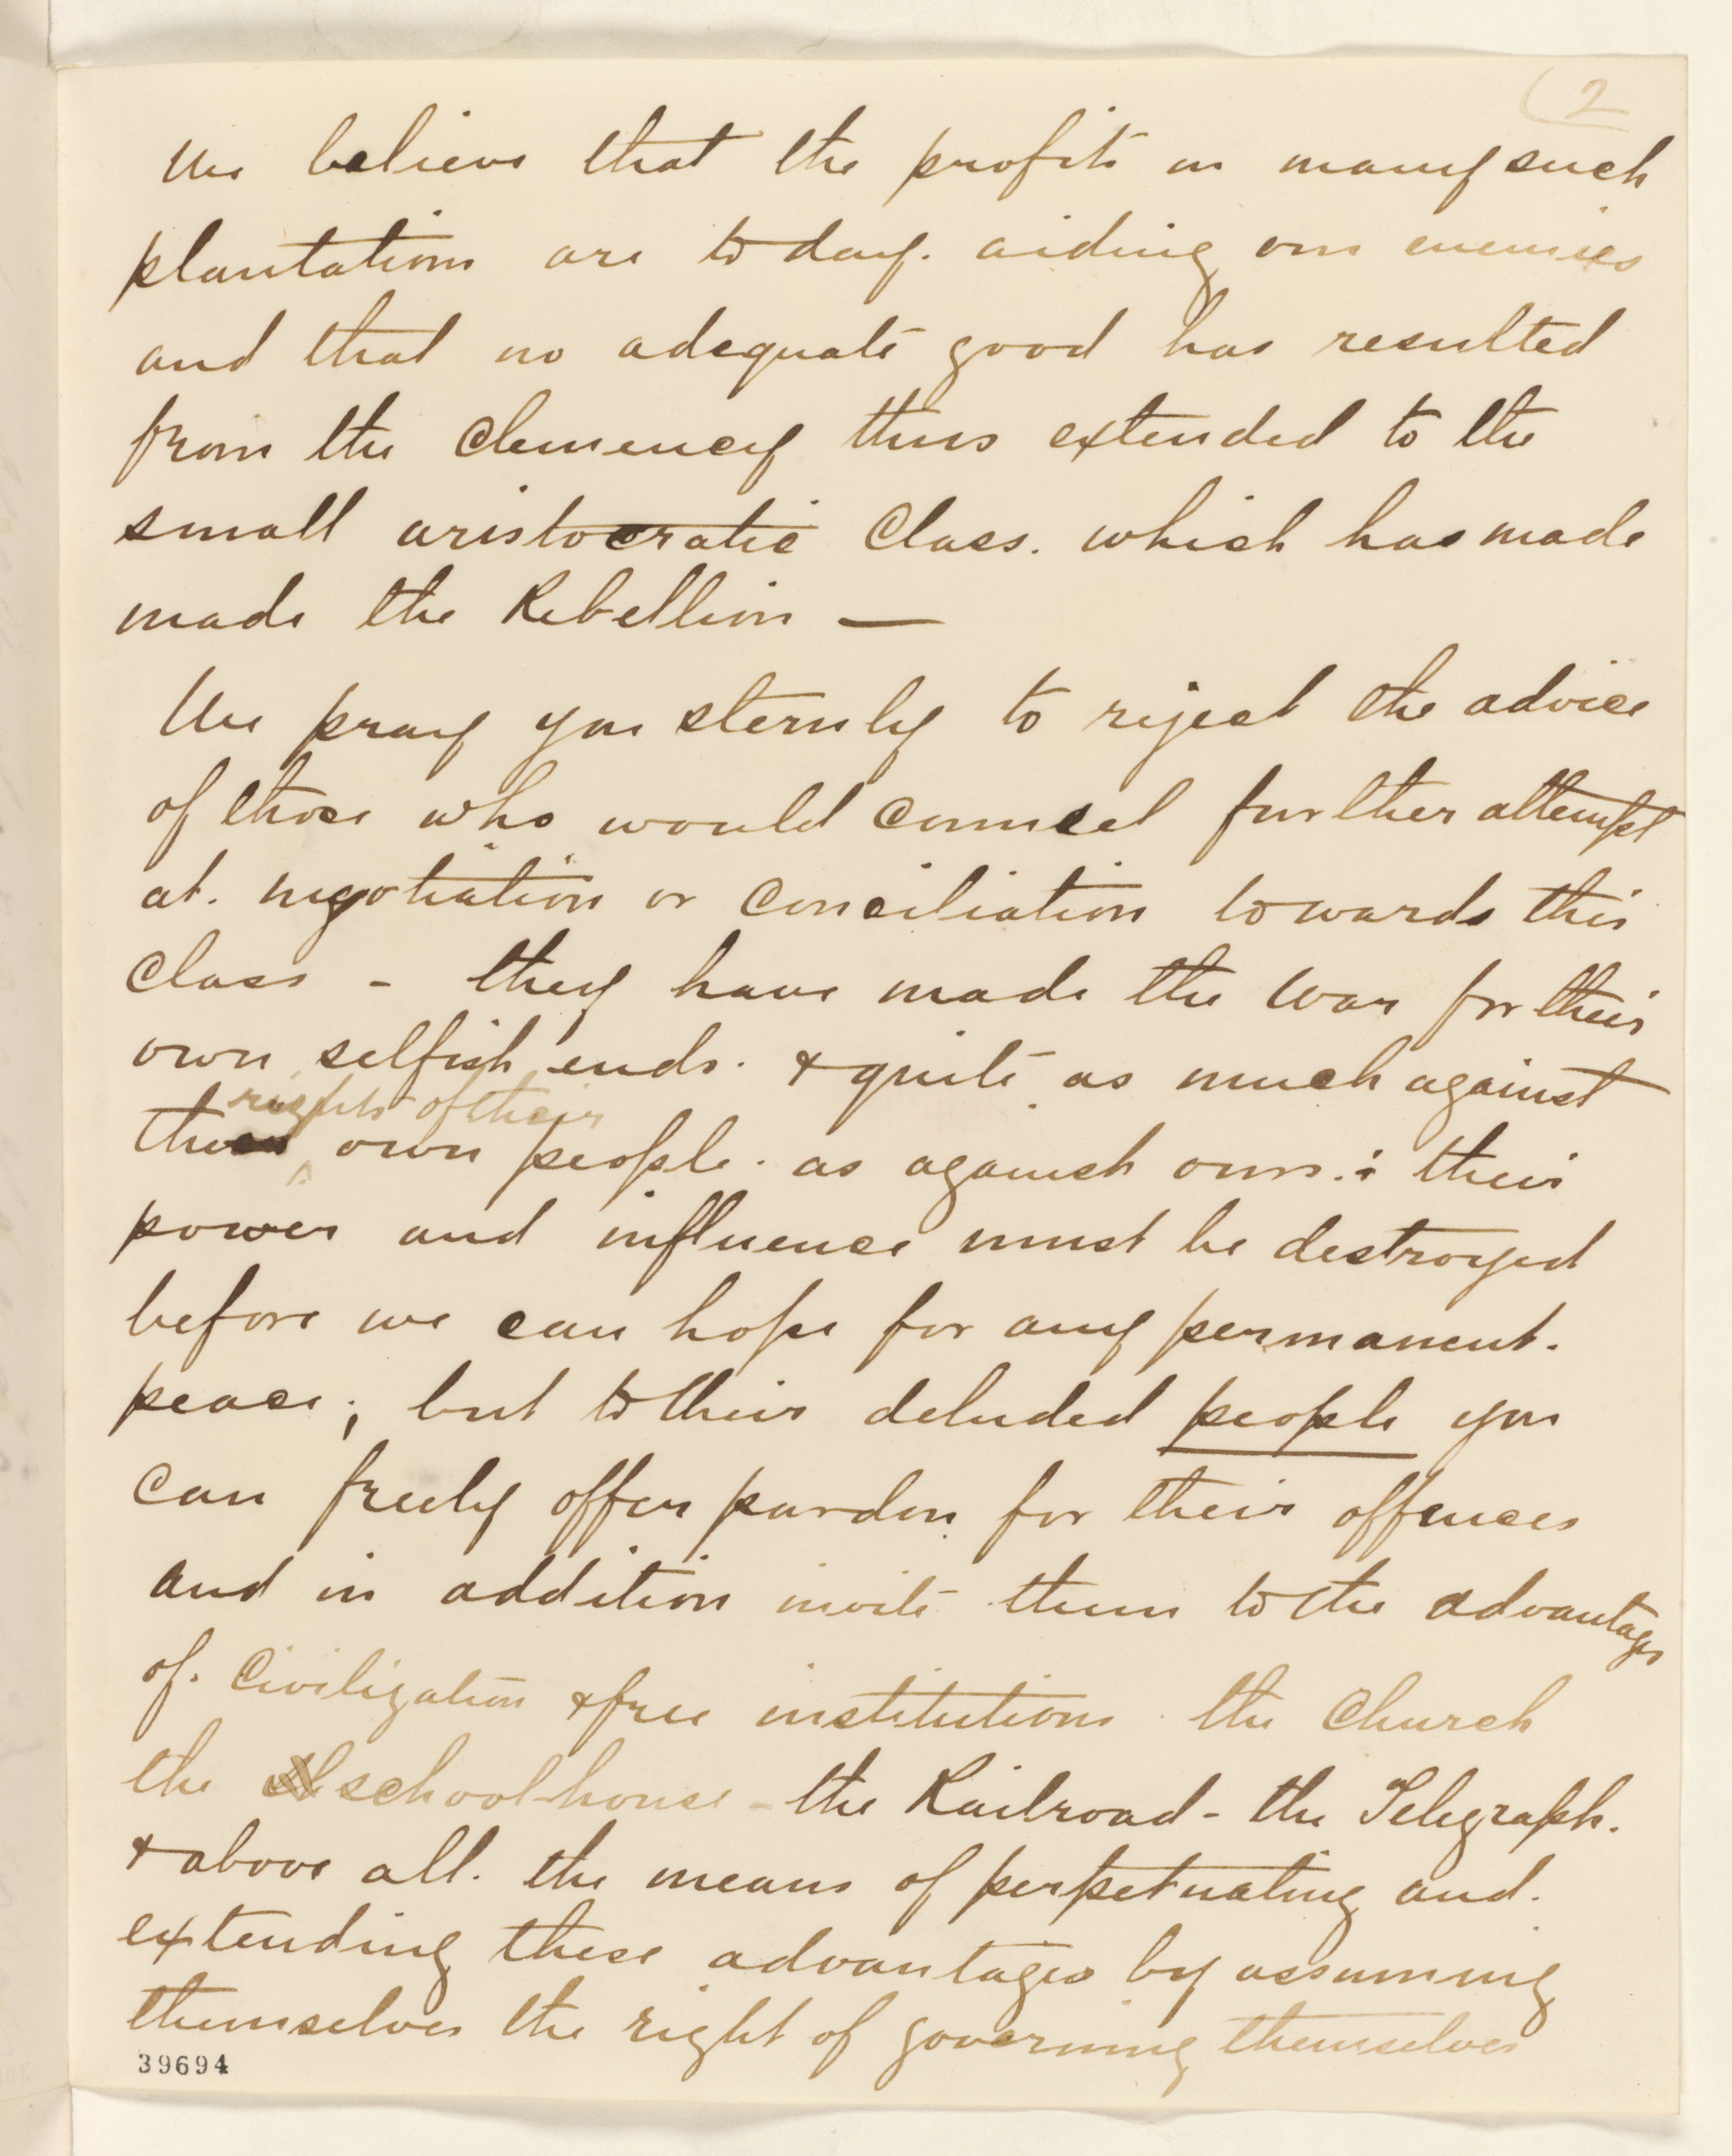 (2
We believe that the profits on many such
plantations are to day. aiding our enemies
and that no adequate good has resulted
from the clemency thus extended to the
small aristocratic Class. which has made
made the Rebellion —
We pray you sternly to reject the advice
of those who would counsel further attempt
at. negotiation or Conciliation towards this
Class - they have made the war for their
own selfish ends. & quite as much against
rights of their
the own people. as against ours.: their
power and influence must be destroyed
before we can hope for any permanent.
peace; but to their deluded people you
can freely offer pardon for their offences
and in addition invite them to the advantages
of. Civilization & free institutions the Church
the schoolhouse - the Railroad - the Telegraph.
& above all. the means of perpetuating and.
extending these advantages by assuming
themselves the right of governing themselves
39694